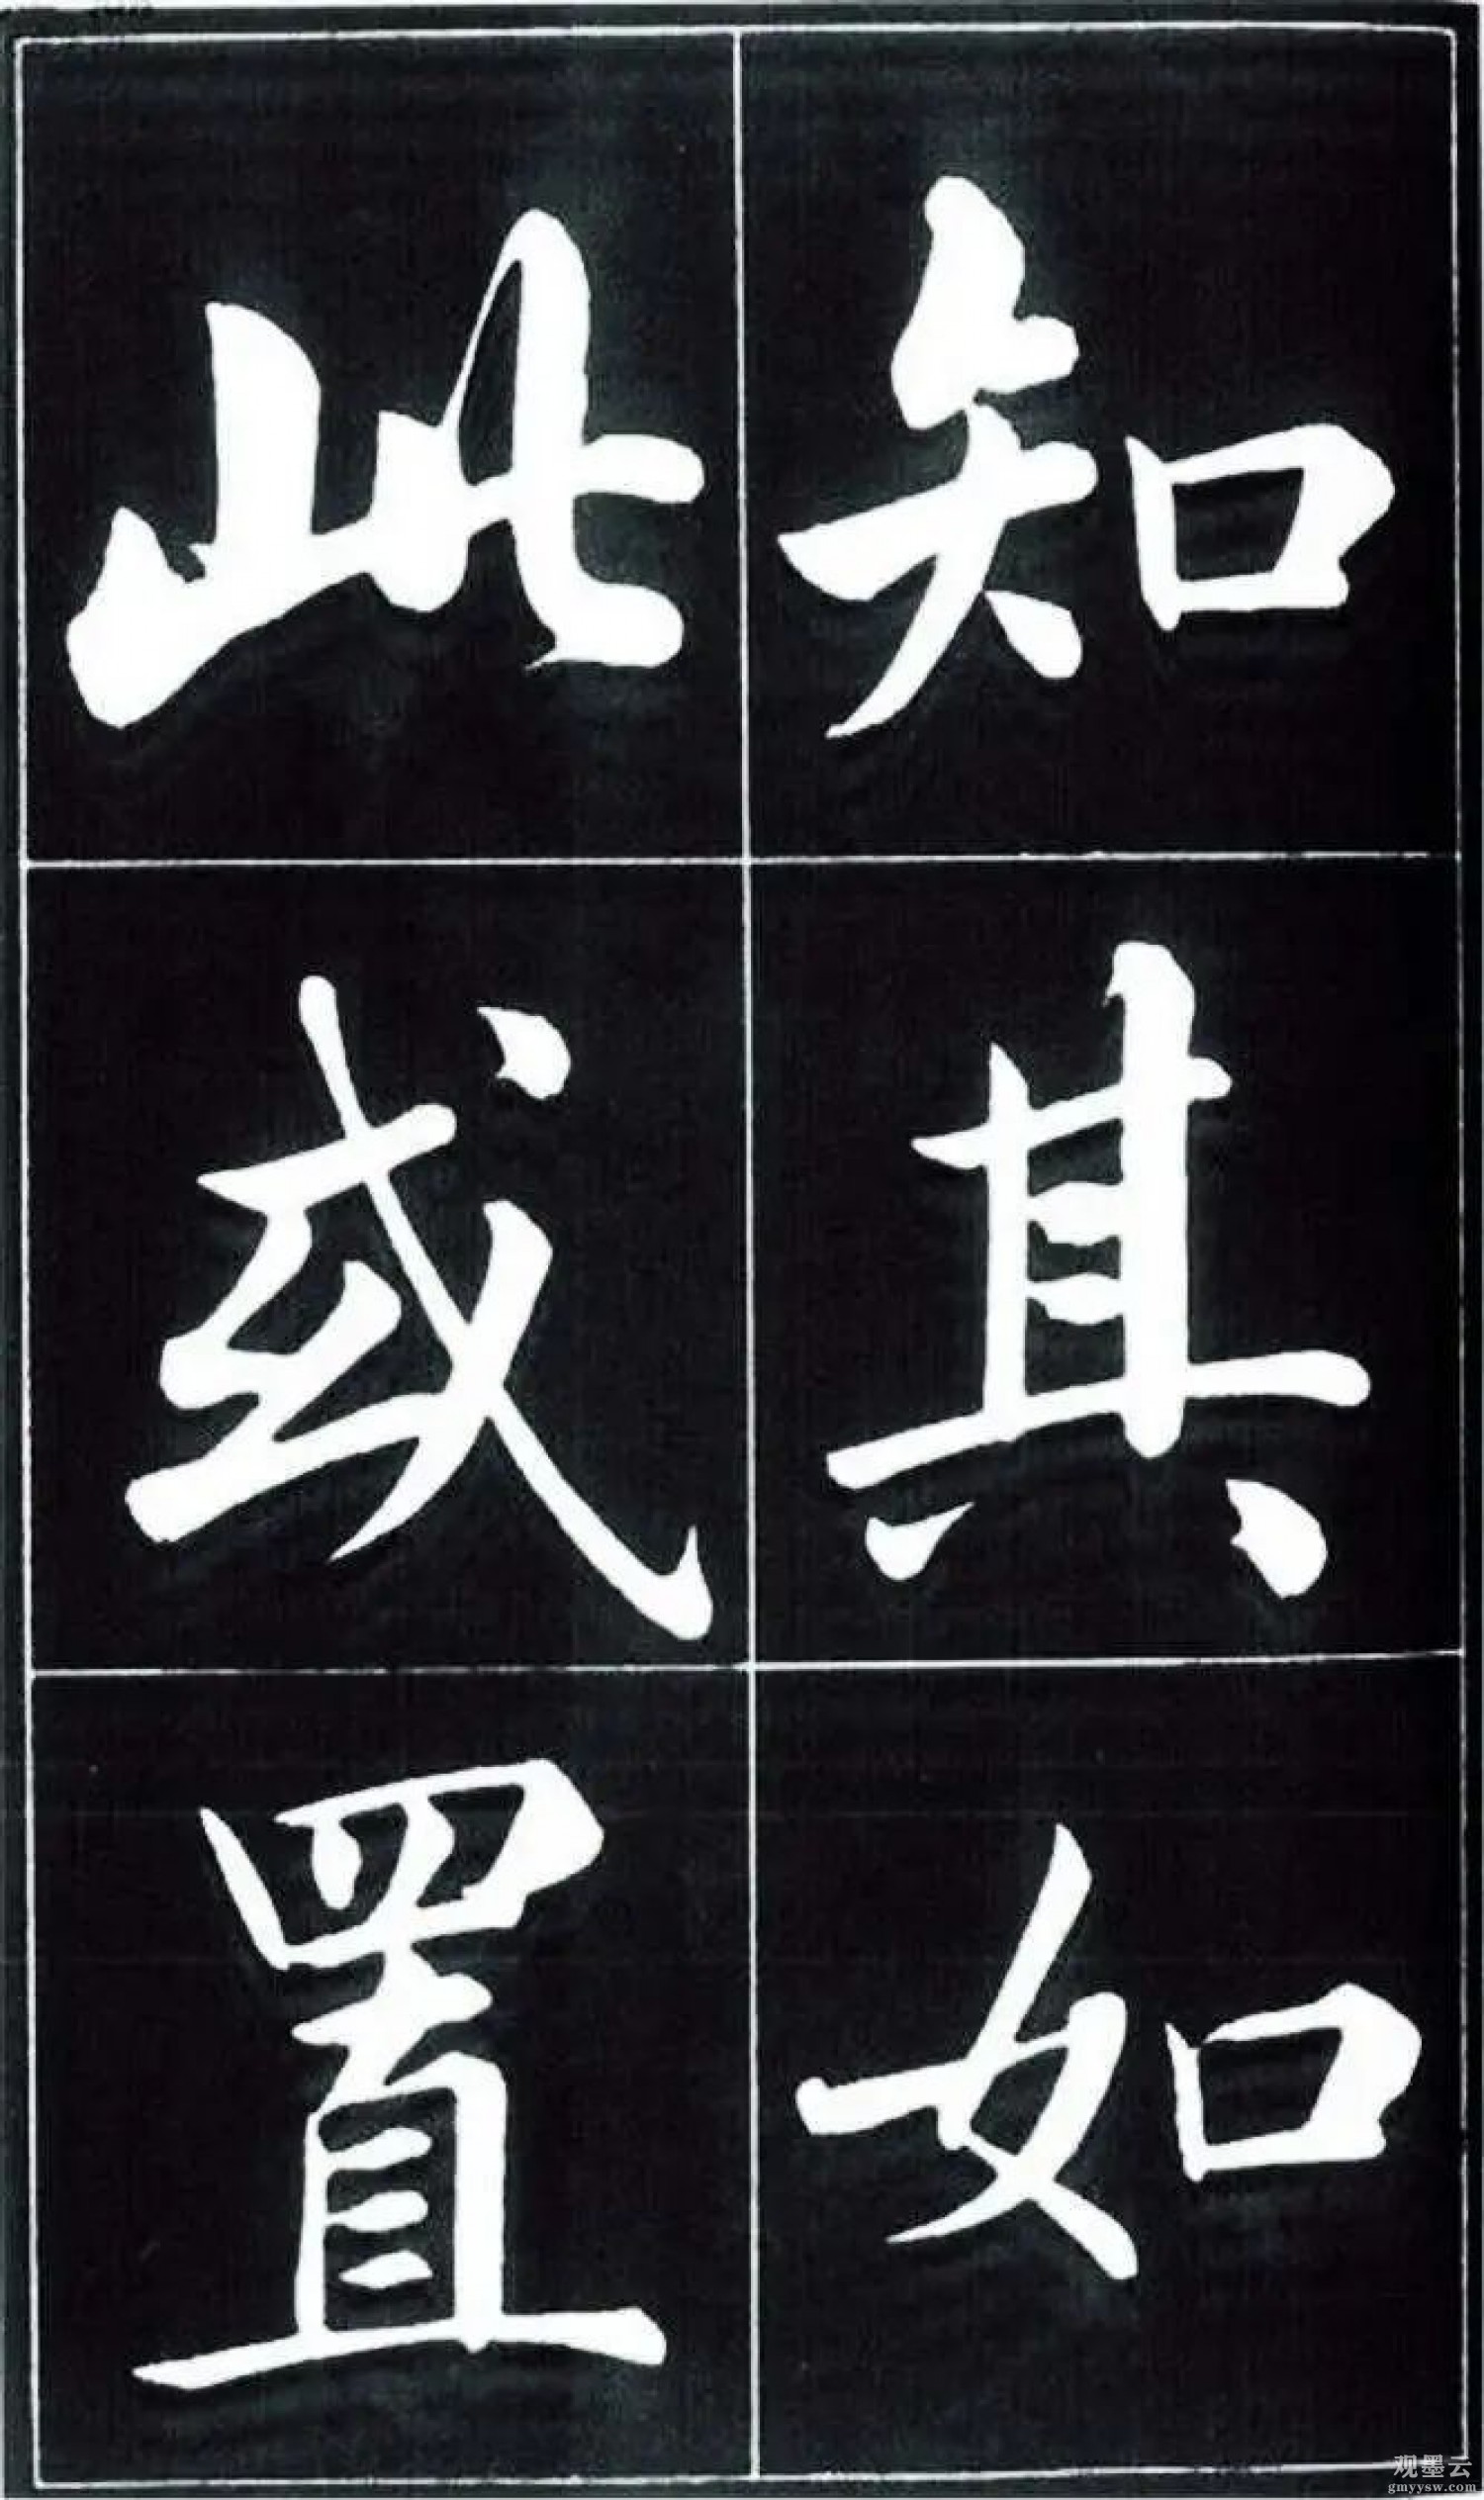 知其如
此或置
观墨云
gmyysw.com